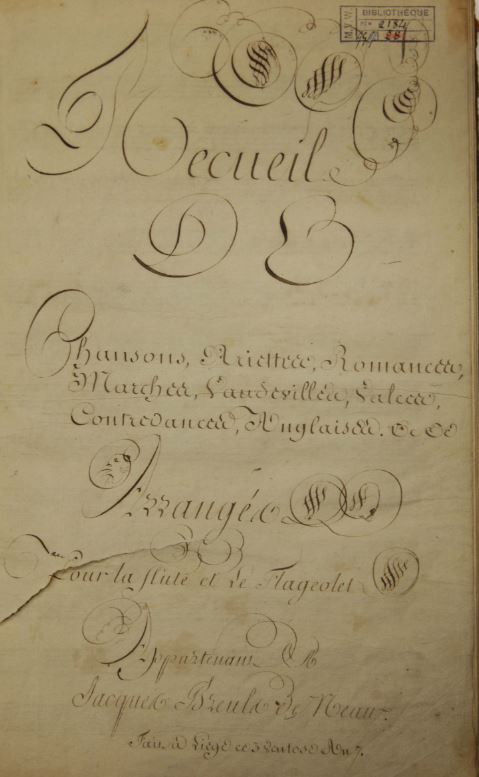 BIBLIOTHÈQUE
M.V.W.
2184
Recueil
DE
Chansons, Ariettes, Romances,
Marches, Vaudevilles, Valces,
Contredances, Anglaises. &c &c
Arrangés
Pour la flute et Le Flageolet
Appartenant A
Jacques Breuls De Neau.
Fait à Liège ce 3 Ventose An 7.